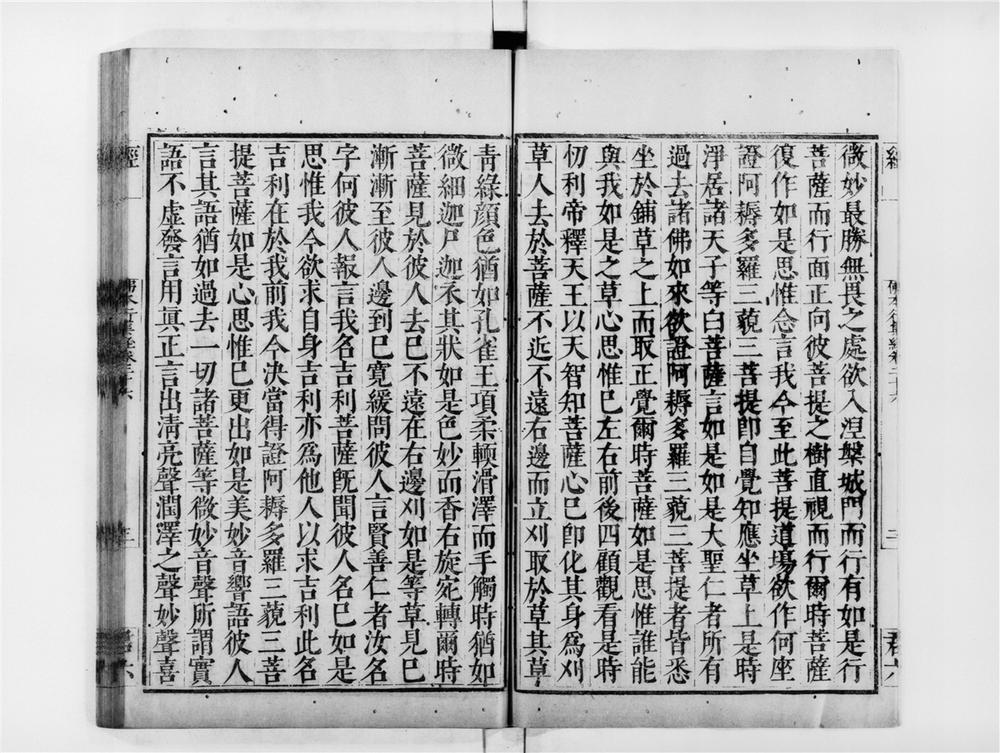 微妙最勝無畏之處欲入涅槃城門而行有如是行
菩薩而行面正向彼菩提之樹直視而行爾時菩薩
復作如是思惟念言我今至此菩提道場欲作何座
證阿耨多羅三藐三菩提卽自覺知應坐草上是時
淨居諸天子等白菩薩言如是如是大聖仁者所有
過去諸佛如來欲證阿耨多羅三藐三菩提者皆悉
坐於鋪草之上而取正覺爾時菩薩如是思惟誰能
與我如是之草心思惟已左右前後四顧觀看是時
忉利帝釋天王以天智知菩薩心已卽化其身爲刈
草人去於菩薩不近不遠右邊而立刈取於草其草
靑綠顔色猶如孔雀王項柔輭滑澤而手觸時猶如
微細迦尸迦衣其狀如是色妙而香右旋宛轉爾時
菩薩見於彼人去已不遠在右邊刈如是等草見已
漸漸至彼人邊到已寬緩問彼人言賢善仁者汝名
字何彼人報言我名吉利菩薩旣聞彼人名已如是
思惟我今欲求自身吉利亦爲他人以求吉利此名
吉利在於我前我今決當得證阿耨多羅三藐三菩
提菩薩如是心思惟已更出如是美妙音響語彼人
言其語猶如過去一切諸菩薩等微妙音聲所謂實
語不虛發言用眞正言出淸亮聲潤澤之聲妙聲喜